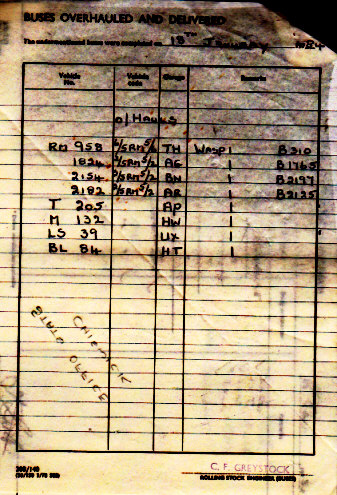 BUSES OVERHAULED AND DELIVERED
The undermentioned buses were completed on 13TH January 1984
Vehicle No. Vehicle code Garage Remarks
O/HAULS
RM 958 2/5RM5/2 TH WASP 1 B310
1824 2/5RM5/2 AC 1 B1765
2154 8/5RM5/2 BN 1 B2197
2182 8/5RM5/2 AR 1 B2125
T 205 AP 1
M 132 HW 1
LS 39 UX 1
BL 84 HT 1
CHISWICK
STATS OFFICE
C. F. GREYSTOCK
ROLLING STOCK ENGINEER (BUSES)